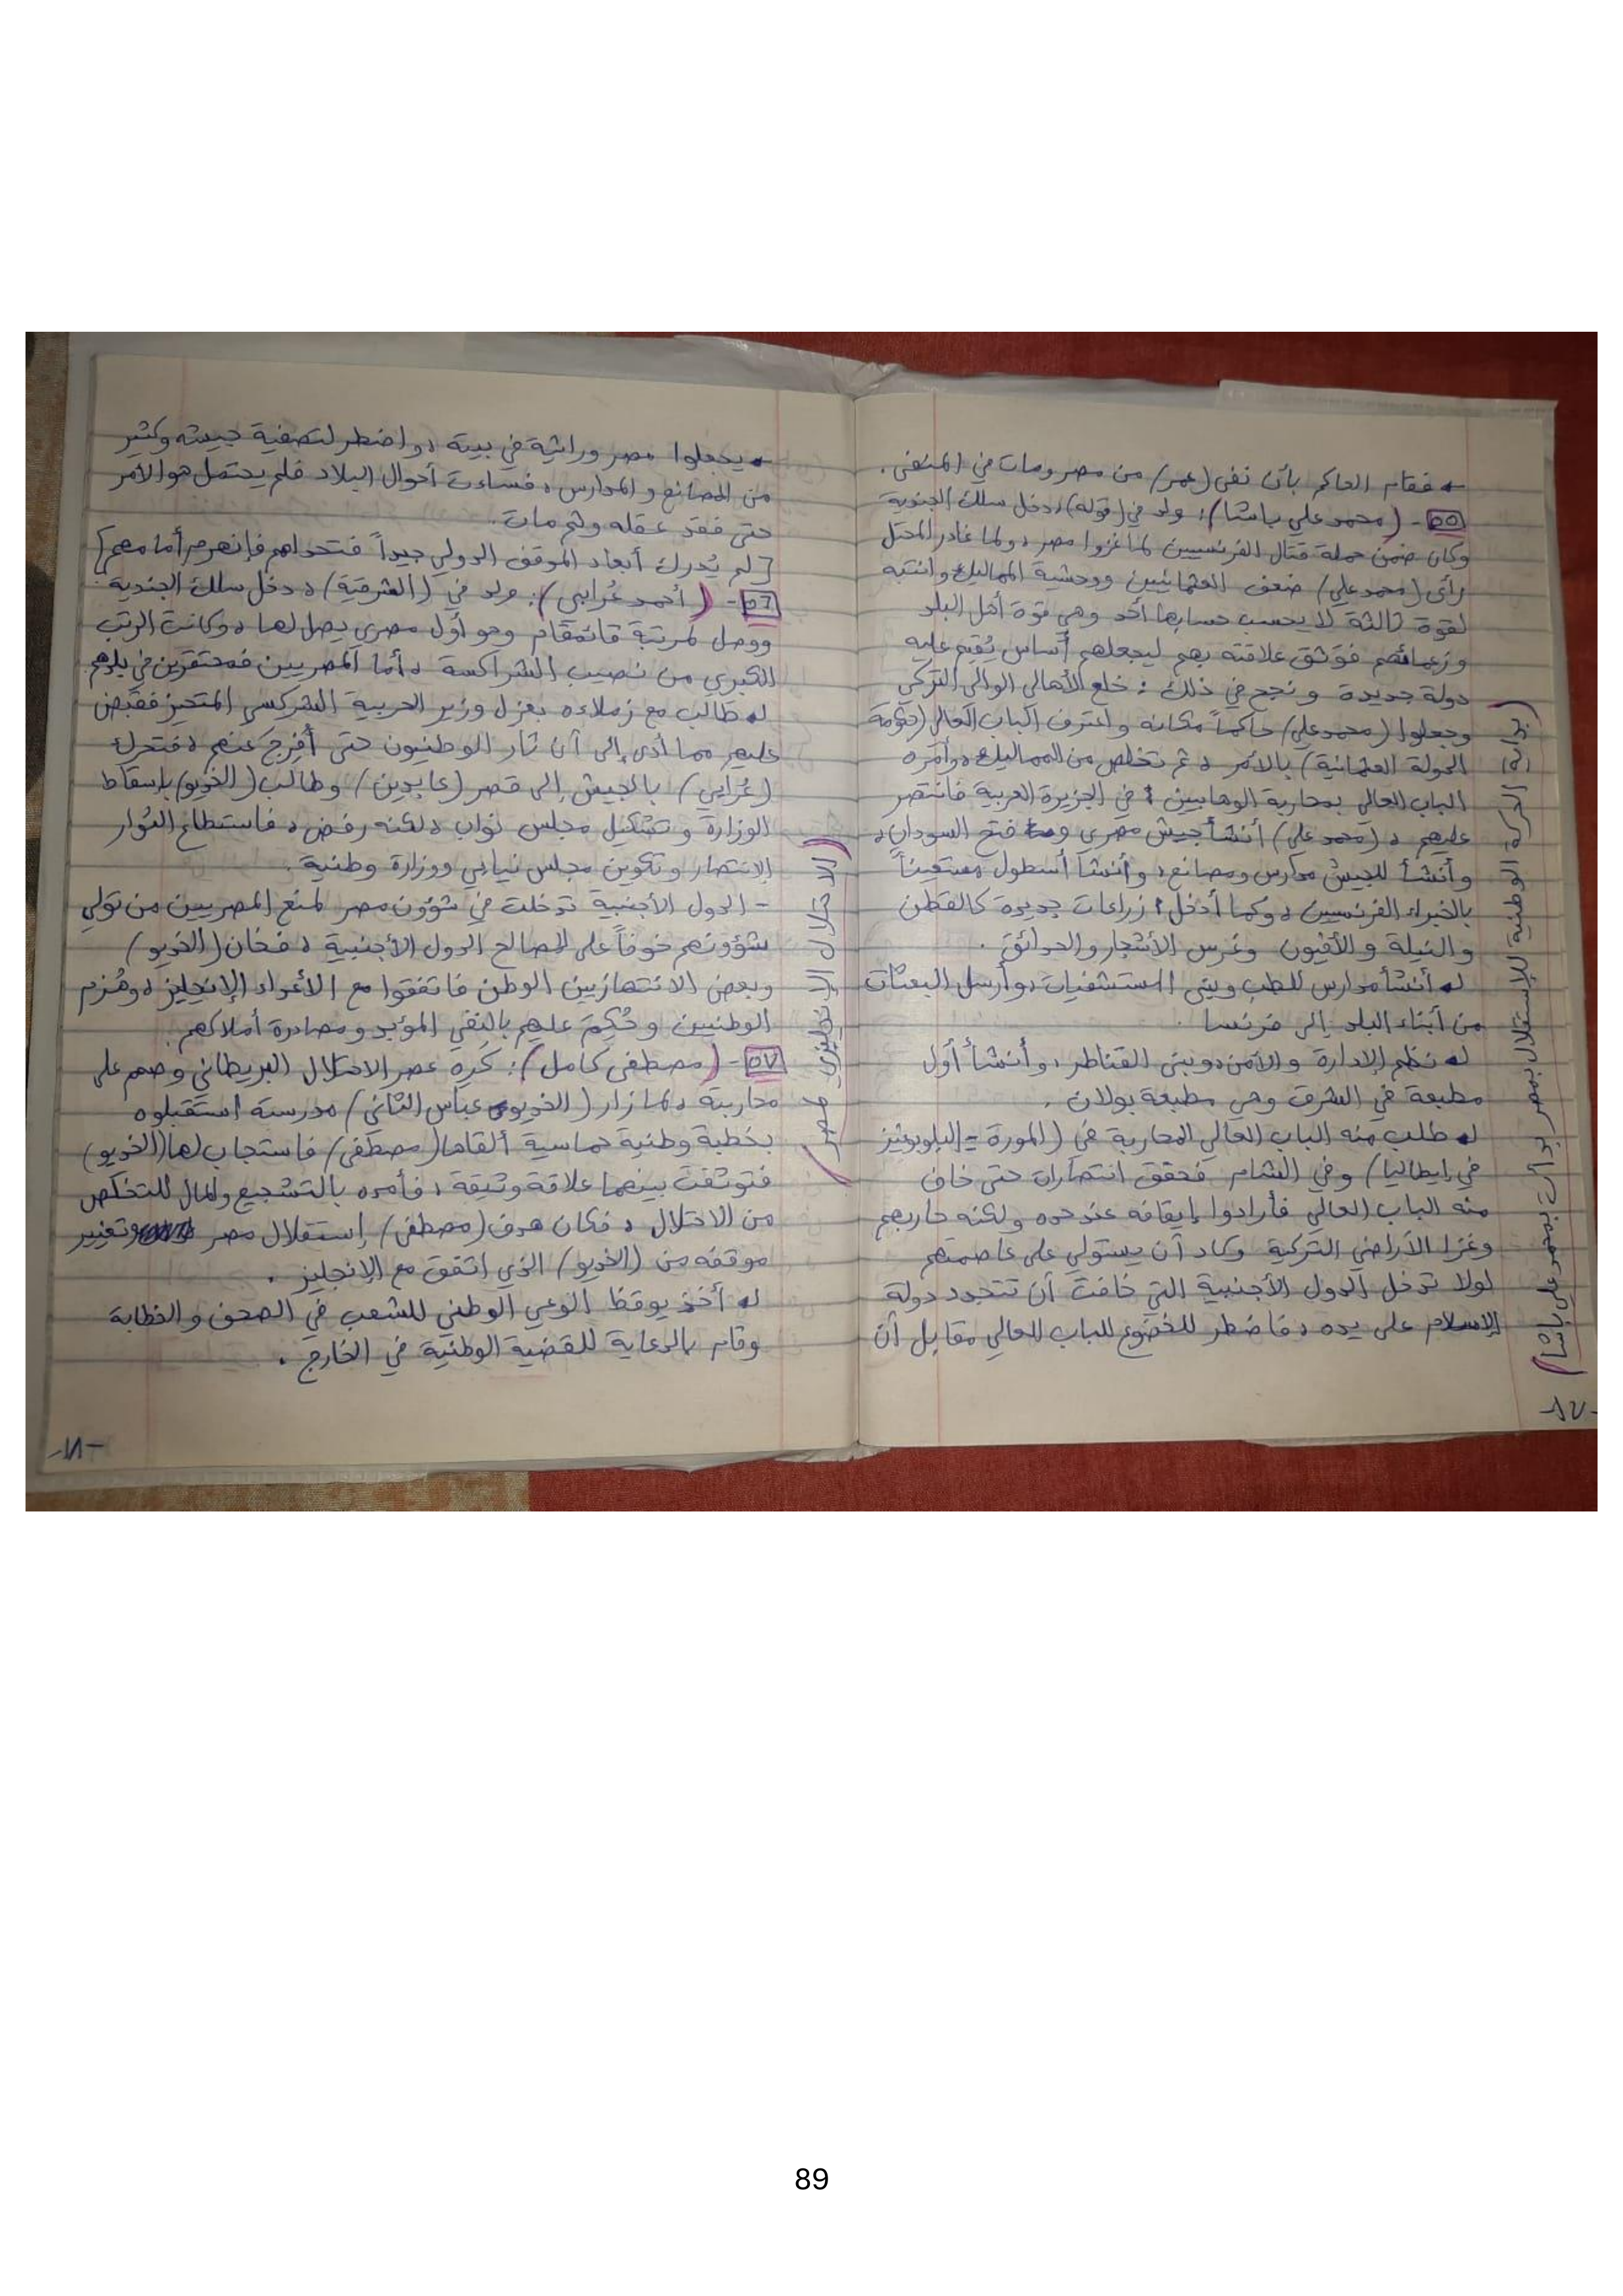 ← فقام الحاكم بأن نفى (عمر) من مصر ومات في المنفى.
٥٥- (محمد علي باشا): ولد في (قولة)، دخل سلك الجندية
وكان ضمن حملة قتال الفرنسيين لما غزوا مصر، ولما غادر المحتل
رأى (محمد علي) ضعف العثمانيين ووحشية المماليك وانتبه
لقوة ثالثة لا يحسب حسابها أحد وهي قوة أهل البلد
وزعمائهم فوثق علاقته بهم ليجعلهم أساس يُقيم عليه
دولة جديدة ونجح في ذلك: خلع الأهالي الوالي التركي
وجعلوا (محمد علي) حاكماً مكانه واعترف الباب العالي (حكومة
الدولة العثمانية) بالأمر، ثم تخلص من المماليك، وأمره
الباب العالي بمحاربة الوهابيين في الجزيرة العربية فانتصر
عليهم، (محمد علي) أنشأ جيش مصري فتح السودان،
وأنشأ للجيش مدارس ومصانع، وأنشأ أسطول مستعيناً
بالخبراء الفرنسيين، وكما أدخل زراعات جديدة كالقطن
والنيلة والأفيون وغرس الأشجار والحدائق.
له أنشأ مدارس للطب وبنى المستشفيات، وأرسل البعثات
من أبناء البلد إلى فرنسا.
له نظم الإدارة والأمن، وبنى القناطر، وأنشأ أول
مطبعة في الشرق وهي مطبعة بولان.
له طلب منه الباب العالي المحاربة في (المورة = البلوبونيز
في إيطاليا) وفي الشام فحقق انتصارات حتى خاف
منه الباب العالي فأرادوا إيقافه عند حده ولكنه حاربهم
وغزا الأراضي التركية وكاد أن يستولي على عاصمتهم
لولا تدخل الدول الأجنبية التي خافت أن تتجدد دولة
الإسلام على يده، فاضطر للخضوع للباب العالي مقابل أن
الحركة الوطنية للإستقلال بمصر بدأت بمحمد علي باشا)
-١٧-
← يجعلوا مصر وراثية في بيته، واضطر لتصفية جيشه وكثير
من المصانع والمدارس، فساءت أحوال البلاد فلم يحتمل هو الأمر
حتى فقد عقله وثم مات.
[لم يُدرك أبعاد الموقف الدولي جيداً فتحداهم فإنهزم أمامهم]
٥٦- (أحمد عُرابي): ولد في (الشرقية)، دخل سلك الجندية
ووصل لمرتبة قائمقام وهو أول مصري يصل لها، وكانت الرتب
الكبرى من نصيب الشراكسة، أما المصريين فمحتقرين في بلدهم.
له طالب مع زملاءه بعزل وزير الحربية الشركسي المتحيز فقبض
عليهم مما أدى إلى أن ثار الوطنيون حتى أُفرِجَ عنهم، فتحرك
(عُرابي) بالجيش إلى قصر (عابدين) وطالب (الخديو) بإسقاط
الوزارة وتشكيل مجلس نواب، لكنه رفض، فاستطاع الثوار
الإنتصار وتكوين مجلس نيابي ووزارة وطنية.
- الدول الأجنبية تدخلت في شؤون مصر لمنع المصريين من تولي
شؤونهم خوفاً على مصالح الدول الأجنبية، فخان (الخديو)
وبعض الانتهازيين الوطن فاتفقوا مع الأعداء الإنجليز، وهُزم
الوطنيين وحُكِمَ عليهم بالنفي المؤبد ومصادرة أملاكهم.
٥٧- (مصطفى كامل): كَرِهَ عصر الاحتلال البريطاني وصمم على
محاربته، لما زار (الخديوي عباس الثاني) مدرسته استقبلوه
بخطبة وطنية حماسية ألقاها (مصطفى) فاستجاب لها (الخديو)
فتوثقت بينهما علاقة وثيقة، فأمده بالتشجيع والمال للتخلص
من الاحتلال، فكان هدف (مصطفى) إستقلال مصر وتغيير
موقفه من (الخديو) الذي اتفق مع الإنجليز.
له أخذ يوقظ الوعي الوطني للشعب في الصحف والخطابة
وقام بالدعاية للقضية الوطنية في الخارج.
(الاحتلال الإنجليزي لمصر)
-١٨-
89